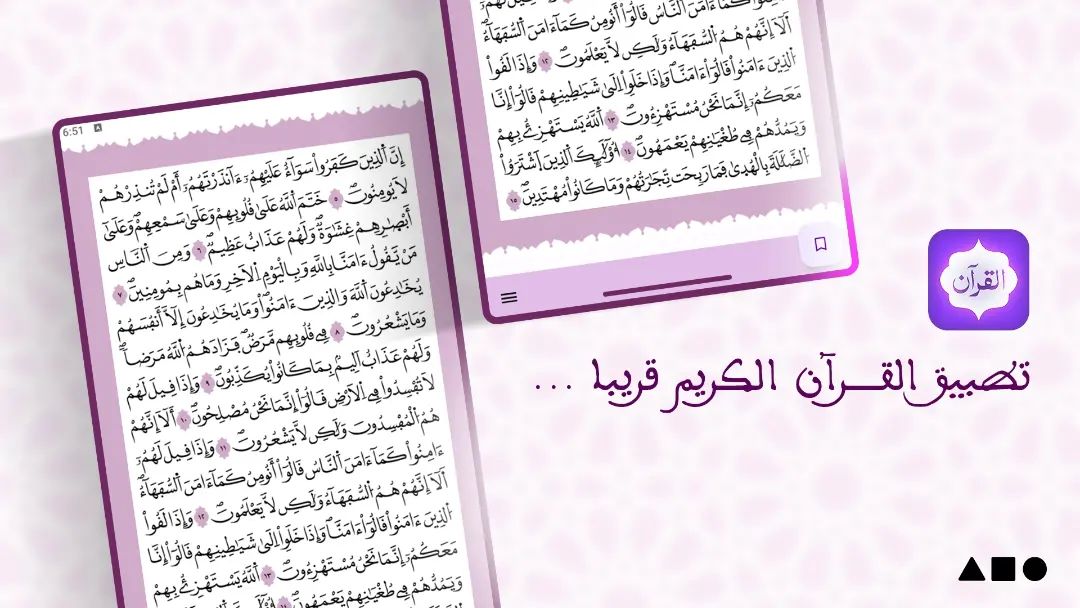 6:51
إِنَّ اَ۬لذِينَ كَفَرُواْ سَوَآءٌ عَلَيْهِمُۥٓ ءَآنذَرْتَهُمُۥٓ أَمْ لَمْ تُنذِرْهُمْ
لَا يُومِنُونَۖ ٥ خَتَمَ اَ۬للَّهُ عَلَىٰ قُلُوبِهِمْ وَعَلَىٰ سَمْعِهِمْۖ وَعَلَىٰٓ
أَبْصٰ۪رِهِمْ غِشَٰوَةٞۖ وَلَهُمْ عَذَابٌ عَظِيمٞۖ ٦ وَمِنَ اَ۬لنَّاسِ
مَنْ يَّقُولُ ءَامَنَّا بِاللَّهِ وَبِالْيَوْمِ اِ۬لَاخِرِ وَمَا هُم بِمُومِنِينَۖ ٧
يُخَٰدِعُونَ اَ۬للَّهَ وَالذِينَ ءَامَنُواْۖ وَمَا يُخَٰدِعُونَ إِلَّآ أَنفُسَهُمْ
وَمَا يَشْعُرُونَۖ ٨ فِے قُلُوبِهِم مَّرَضٞ فَزَادَهُمُ اُ۬للَّهُ مَرَضاٗۖ
وَلَهُمْ عَذَابٌ اَلِيمُۢ بِمَا كَانُواْ يُكَذِّبُونَۖ ٩ وَإِذَا قِيلَ لَهُمْ
لَا تُفْسِدُواْ فِے اِ۬لَارْضِ قَالُوٓاْ إِنَّمَا نَحْنُ مُصْلِحُونَۖ ١٠ أَلَآ إِنَّهُمْ
هُمُ اُ۬لْمُفْسِدُونَ وَلَٰكِن لَّا يَشْعُرُونَۖ ١١ وَإِذَا قِيلَ لَهُمُۥٓ
ءَامِنُواْ كَمَآ ءَامَنَ اَ۬لنَّاسُ قَالُوٓاْ أَنُومِنُ كَمَآ ءَامَنَ اَ۬لسُّفَهَآءُۖ
أَلَآ إِنَّهُمْ هُمُ اُ۬لسُّفَهَآءُ وَلَٰكِن لَّا يَعْلَمُونَۖ ١٢ وَإِذَا لَقُواْ
اُ۬لذِينَ ءَامَنُواْ قَالُوٓاْ ءَامَنَّاۖ وَإِذَا خَلَوِاْ اِلَىٰ شَيَٰطِينِهِمْ قَالُوٓاْ إِنَّا
مَعَكُمُۥٓ إِنَّمَا نَحْنُ مُسْتَهْزِءُونَۖ ١٣ اَ۬للَّهُ يَسْتَهْزِۓُ بِهِمْ
وَيَمُدُّهُمْ فِے طُغْيَٰنِهِمْ يَعْمَهُونَۖ
ءَامِنُواْ كَمَآ ءَامَنَ اَ۬لنَّاسُ قَالُوٓاْ أَنُومِنُ كَمَآ ءَامَنَ اَ۬لسُّفَهَآءُۖ
أَلَآ إِنَّهُمْ هُمُ اُ۬لسُّفَهَآءُ وَلَٰكِن لَّا يَعْلَمُونَۖ ١٢ وَإِذَا لَقُواْ
اُ۬لذِينَ ءَامَنُواْ قَالُوٓاْ ءَامَنَّاۖ وَإِذَا خَلَوِاْ اِلَىٰ شَيَٰطِينِهِمْ قَالُوٓاْ إِنَّا
مَعَكُمُۥٓ إِنَّمَا نَحْنُ مُسْتَهْزِءُونَۖ ١٣ اَ۬للَّهُ يَسْتَهْزِۓُ بِهِمْ
وَيَمُدُّهُمْ فِے طُغْيَٰنِهِمْ يَعْمَهُونَۖ ١٤ أُوْلَٰٓئِكَ اَ۬لذِينَ اَ۪شْتَرَوُاْ
اُ۬لضَّلَٰلَةَ بِالْهُدَىٰ فَمَا رَبِحَت تِّجَٰرَتُهُمْ وَمَا كَانُواْ مُهْتَدِينَۖ ١٥
القرآن
تطبيق القرآن الكريم قريبا ...